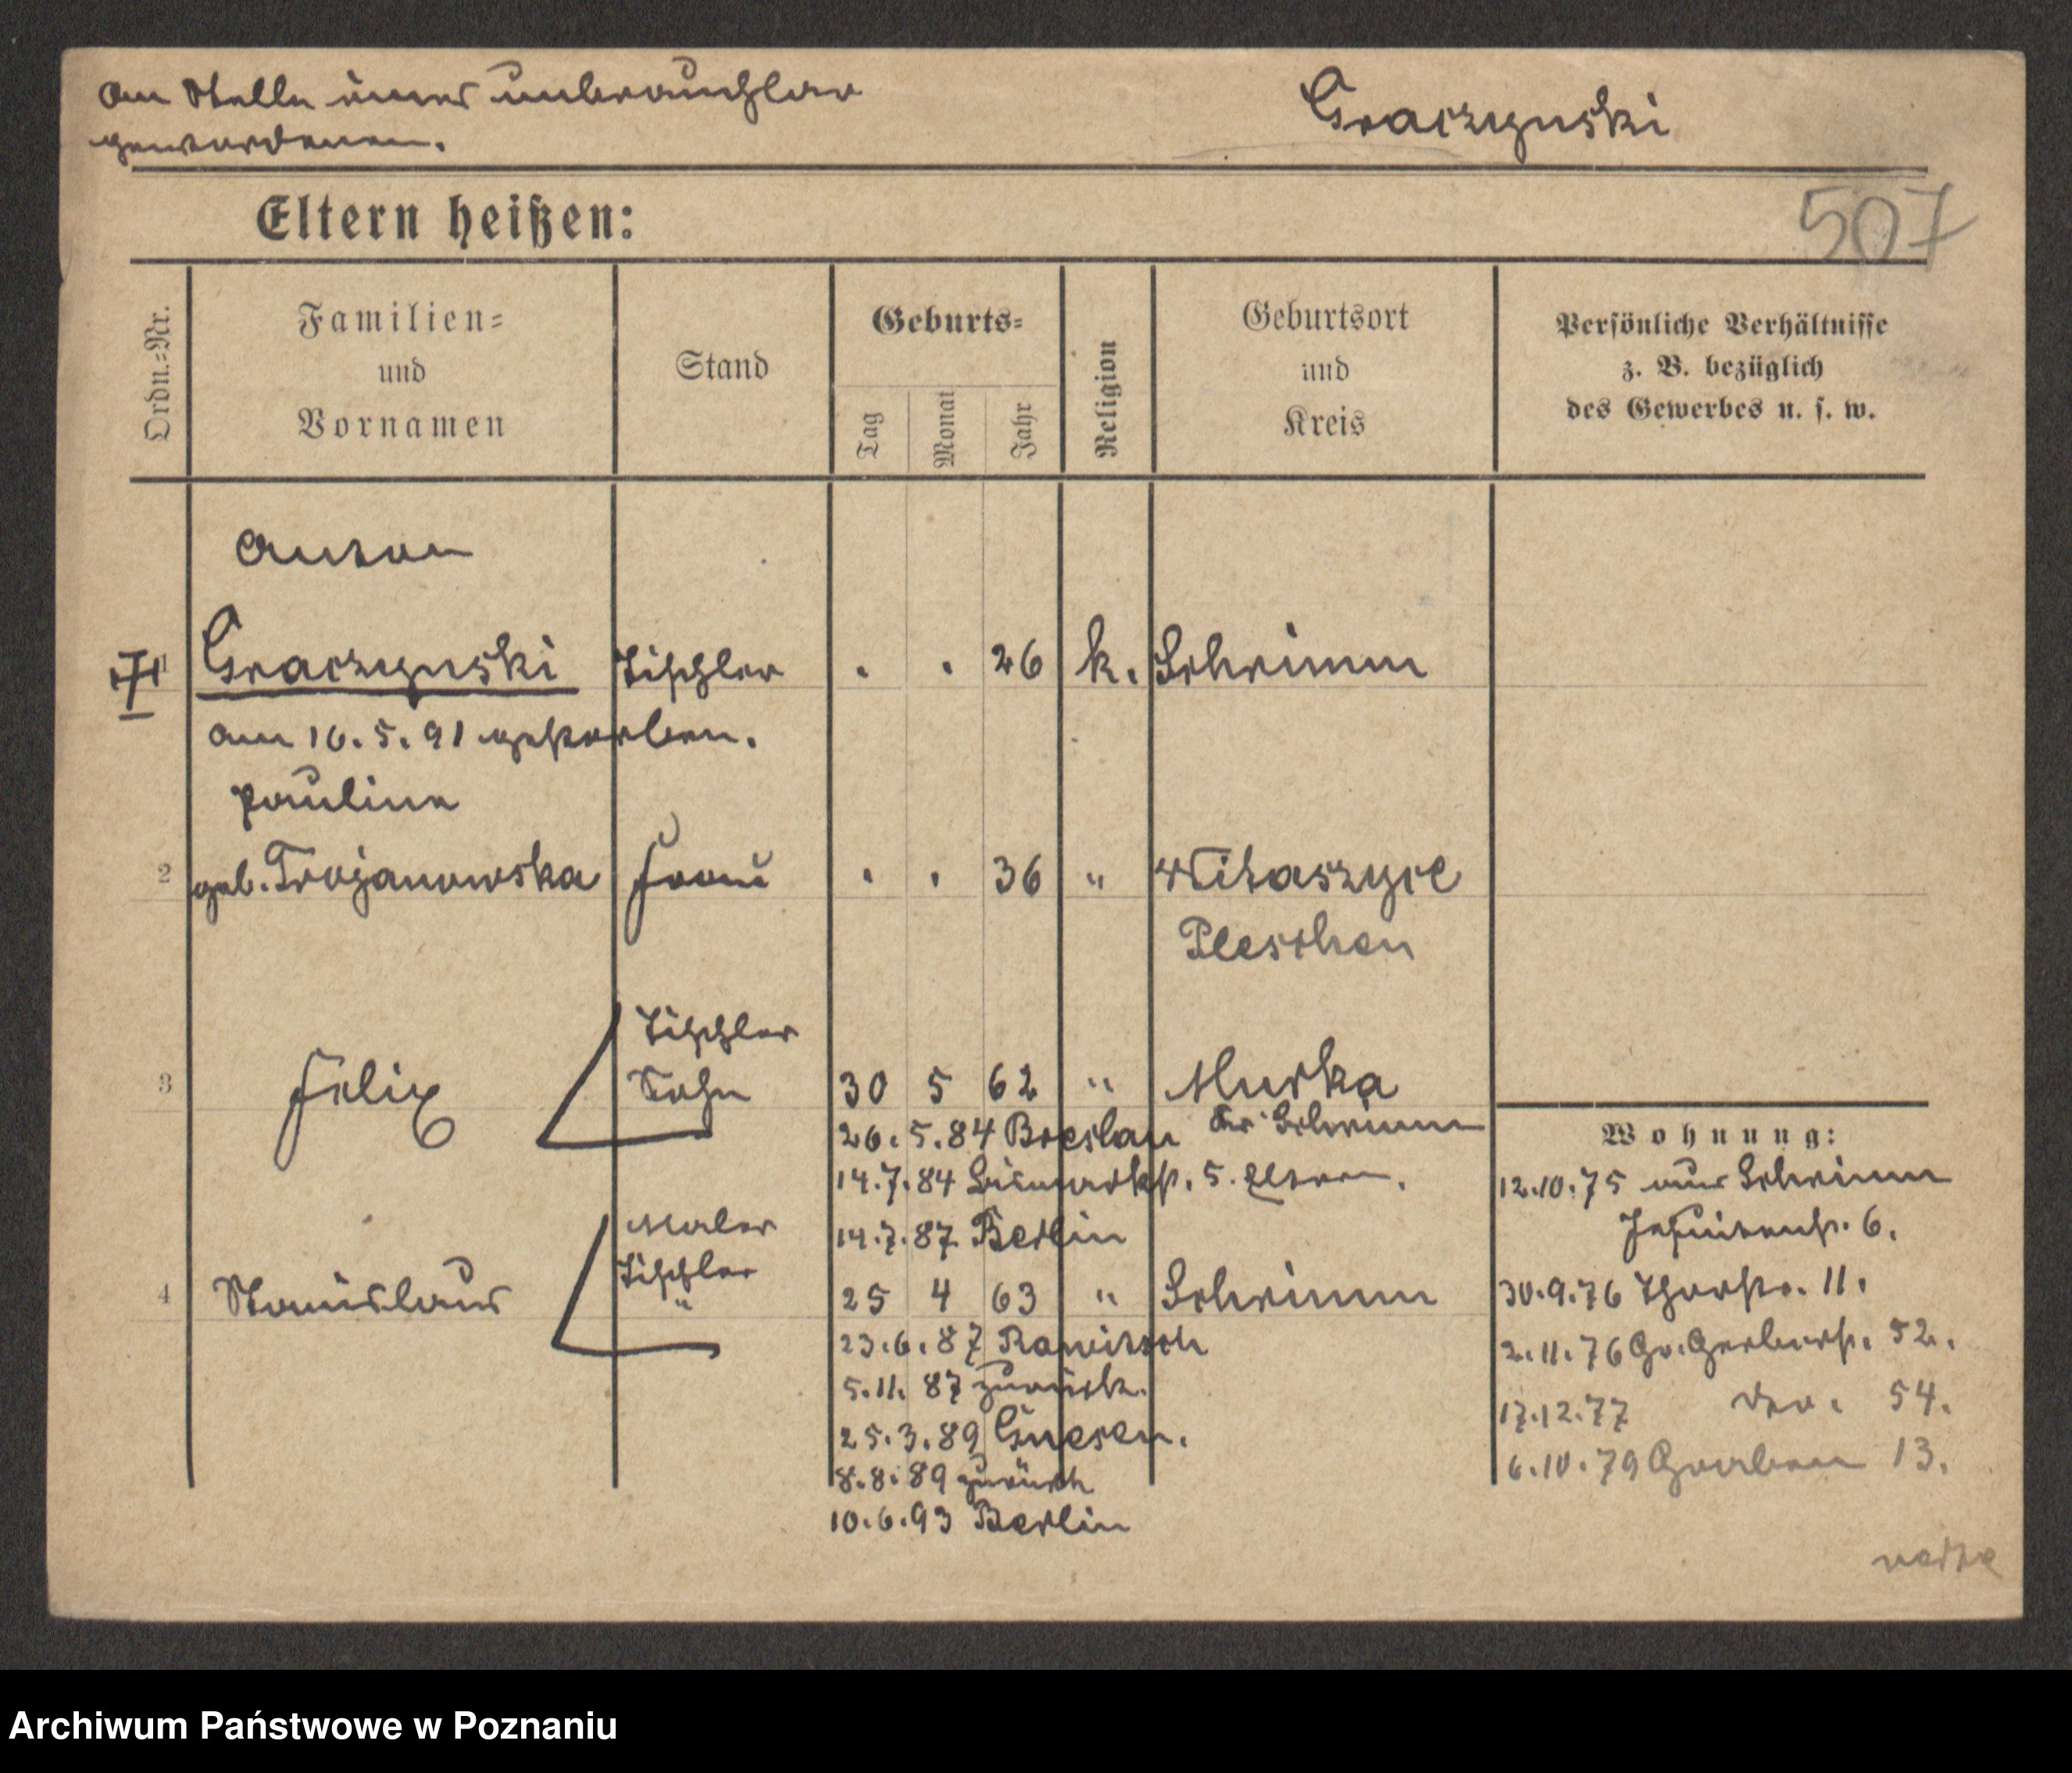 An Stelle einer unbrauchbar
gewordenen.
Graczynski
507
Eltern heißen:
Ordn.=Nr.
Familien=
und
Vornamen
Stand
Geburts=
Tag
Monat
Jahr
Religion
Geburtsort
und
Kreis
Persönliche Verhältnisse
z. B. bezüglich
des Gewerbes u. s. w.
Anton
1 Graczynski Tischler . . 26 k. Schrimm
am 16.5.91 gestorben.
Pauline
2 geb. Trojanowska Frau . . 36 " Witaszyce
Pleschen
Tischler
3 Felix Sohn 30 5 62 " Murka
Kr. Schrimm
26.5.84 Breslau
14.7.84 Bismarckst. 5. Eltern.
14.7.87 Berlin
Maler
Tischler
4 Stanislaus " 25 4 63 " Schrimm
23.6.87 Rawitsch
5.11.87 zurück.
25.3.89 Gnesen.
8.8.89 zurück
10.6.93 Berlin
Wohnung:
12.10.75 aus Schrimm
Jesuitenst. 6.
30.9.76 Thorstr. 11.
2.11.76 Gr. Gerberst. 52.
17.12.77 do. 54.
6.10.79 Graben 13.
Archiwum Państwowe w Poznaniu